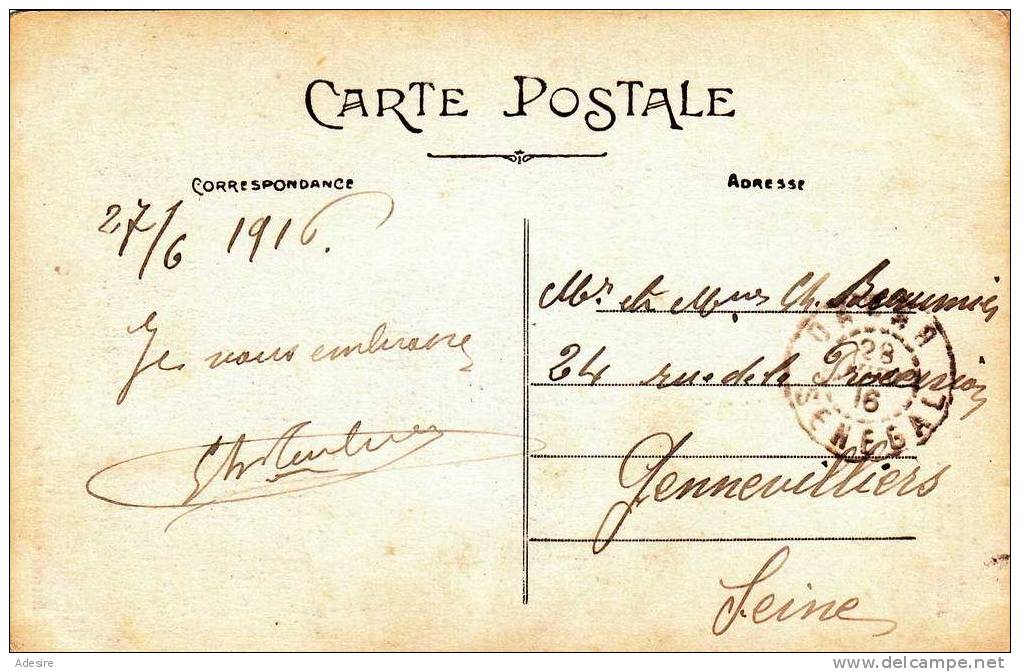 CARTE POSTALE
CORRESPONDANCE
ADRESSE
27/6 1916.
Je vous embrasse
Mr. et Mme Ch. Beaumier
24 rue de la Procession
Gennevilliers
Seine
DAKAR
28
16
SENEGAL
Adesire
www.delcampe.net